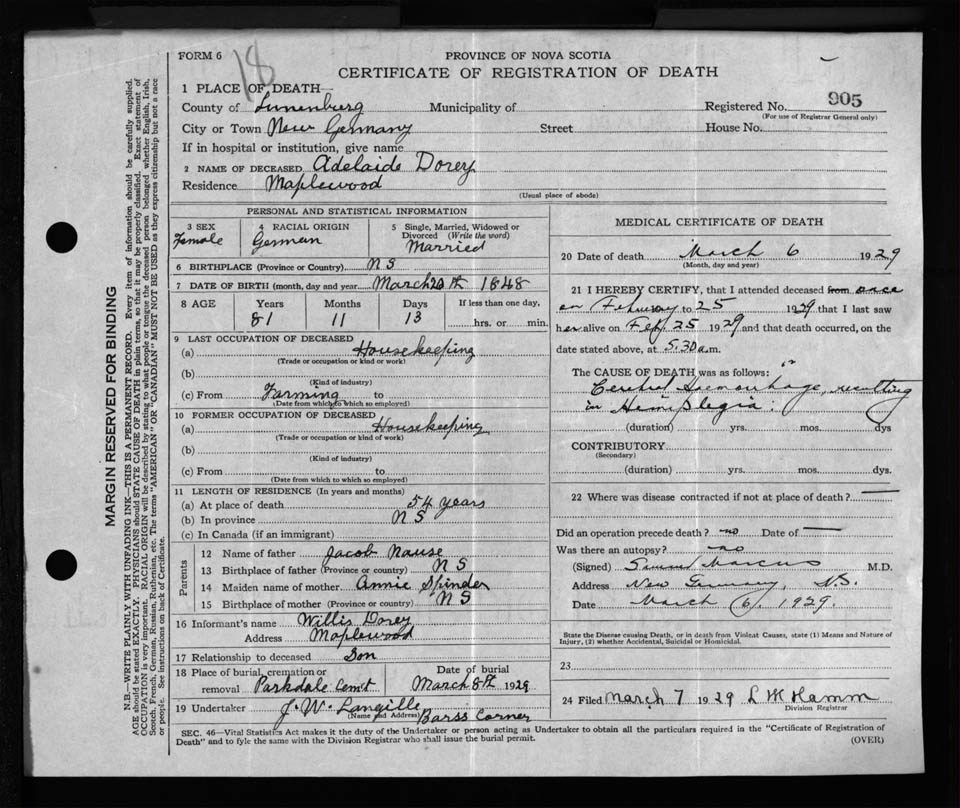 FORM 6
18
PROVINCE OF NOVA SCOTIA
CERTIFICATE OF REGISTRATION OF DEATH
1 PLACE OF DEATH
County of Lunenburg Municipality of Registered No. 905
(For use of Registrar General only)
City or Town New Germany Street House No.
If in hospital or institution, give name
2 NAME OF DECEASED Adelaide Dorey
Residence Maplewood
(Usual place of abode)
MARGIN RESERVED FOR BINDING
N.B.—WRITE PLAINLY WITH UNFADING INK—THIS IS A PERMANENT RECORD. Every item of information should be carefully supplied.
AGE should be stated EXACTLY. PHYSICIANS should STATE CAUSE OF DEATH in plain terms, so that it may be properly classified. Exact statement of
OCCUPATION is very important. RACIAL ORIGIN will be described by stating to what people or tongue the deceased person belonged whether English, Irish,
Scotch, French, German, Russian, Ruthenian, etc. The terms "AMERICAN" or "CANADIAN" MUST NOT BE USED as they express citizenship but not a race
or people. See instructions on back of Certificate.
PERSONAL AND STATISTICAL INFORMATION
3 SEX
Female
4 RACIAL ORIGIN
German
5 Single, Married, Widowed or
Divorced (Write the word)
Married
6 BIRTHPLACE (Province or Country) N S
7 DATE OF BIRTH (month, day and year) March 20th 1848
8 AGE Years Months Days If less than one day,
81 11 13 hrs. or min.
9 LAST OCCUPATION OF DECEASED
(a) Housekeeping
(Trade or occupation or kind or work)
(b)
(Kind of industry)
(c) From Farming to
(Date from which to which so employed)
10 FORMER OCCUPATION OF DECEASED
(a) Housekeeping
(Trade or occupation or kind of work)
(b)
(Kind of industry)
(c) From to
(Date from which to which so employed)
11 LENGTH OF RESIDENCE (In years and months)
(a) At place of death 54 years
(b) In province N S
(c) In Canada (if an immigrant)
Parents
12 Name of father Jacob Nause
13 Birthplace of father (Province or country) N S
14 Maiden name of mother Annie Spinder
15 Birthplace of mother (Province or country) N S
16 Informant's name Willis Dorey
Address Maplewood
17 Relationship to deceased Son
18 Place of burial, cremation or
removal Parkdale Cemt
Date of burial
March 8th 1929
19 Undertaker J. W. Langille
(Name and Address) Barss Corner
MEDICAL CERTIFICATE OF DEATH
20 Date of death March 6 1929
(Month, day and year)
21 I HEREBY CERTIFY, that I attended deceased from once
on February to 25 1929 that I last saw
her alive on Feb. 25 1929 and that death occurred, on the
date stated above, at 5.30 a.m.
The CAUSE OF DEATH was as follows:
Cerebral Haemorrhage, resulting
in Hemiplegia.
(duration) yrs. mos. dys
CONTRIBUTORY
(Secondary)
(duration) yrs. mos. dys.
22 Where was disease contracted if not at place of death?
Did an operation precede death? no Date of
Was there an autopsy? no
(Signed) Marcus M.D.
Address New Germany, N.S.
Date March 6, 1929.
State the Disease causing Death, or in death from Violent Causes, state (1) Means and Nature of
Injury, (2) whether Accidental, Suicidal or Homicidal.
23
24 Filed March 7 1929 L M Hamm
Division Registrar
SEC. 46—Vital Statistics Act makes it the duty of the Undertaker or person acting as Undertaker to obtain all the particulars required in the "Certificate of Registration of
Death" and to fyle the same with the Division Registrar who shall issue the burial permit.
(OVER)